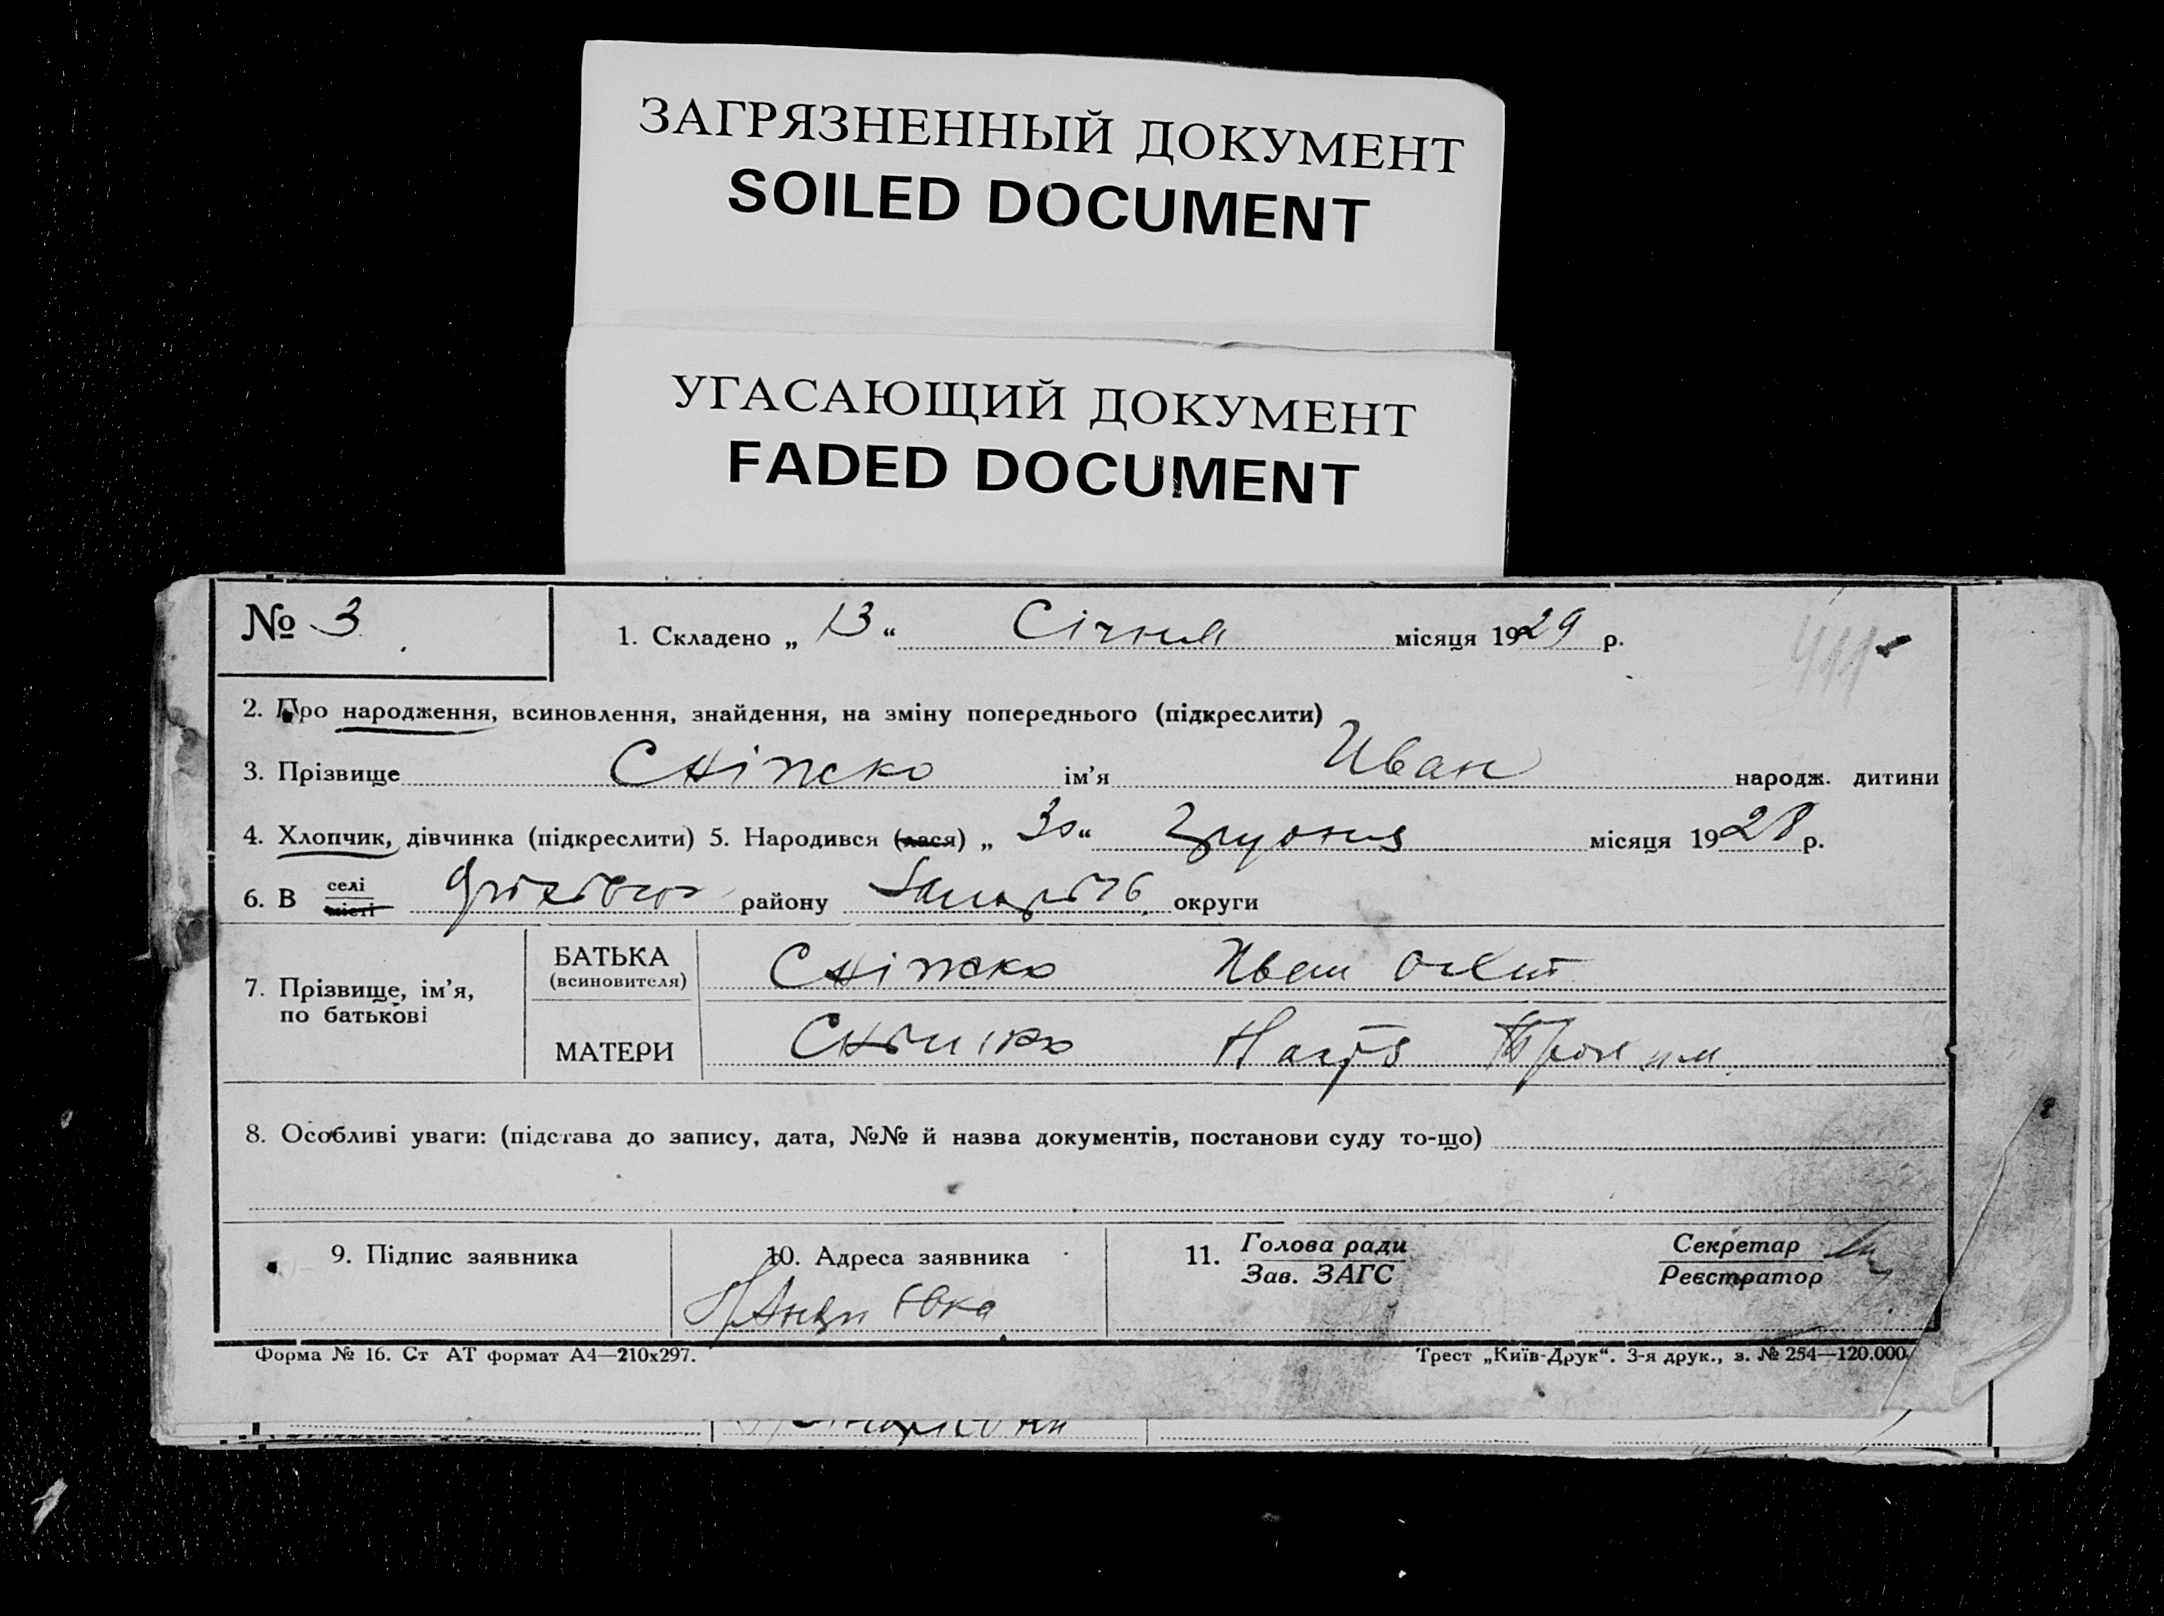 ЗАГРЯЗНЕННЫЙ ДОКУМЕНТ
SOILED DOCUMENT
УГАСАЮЩИЙ ДОКУМЕНТ
FADED DOCUMENT
№ 3
1. Складено „ 13 “ Січня місяця 1929 р.
2. Про народження, всиновлення, знайдення, на зміну попереднього (підкреслити)
3. Прізвище Сніжко ім’я Иван народж. дитини
4. Хлопчик, дівчинка (підкреслити) 5. Народився (лася) „ 30 “ Грудня місяця 1928 р.
6. В селі
місті району округи
7. Прізвище, ім’я,
по батькові
БАТЬКА
(всиновителя)
Сніжко Иван
МАТЕРИ
8. Особливі уваги: (підстава до запису, дата, №№ й назва документів, постанови суду то-що)
9. Підпис заявника
10. Адреса заявника
11. Голова ради
Зав. ЗАГС
Секретар
Реєстратор
Форма № 16. Ст АТ формат А4—210х297.
Трест „Київ-Друк“. 3-я друк., з. № 254—120.000.